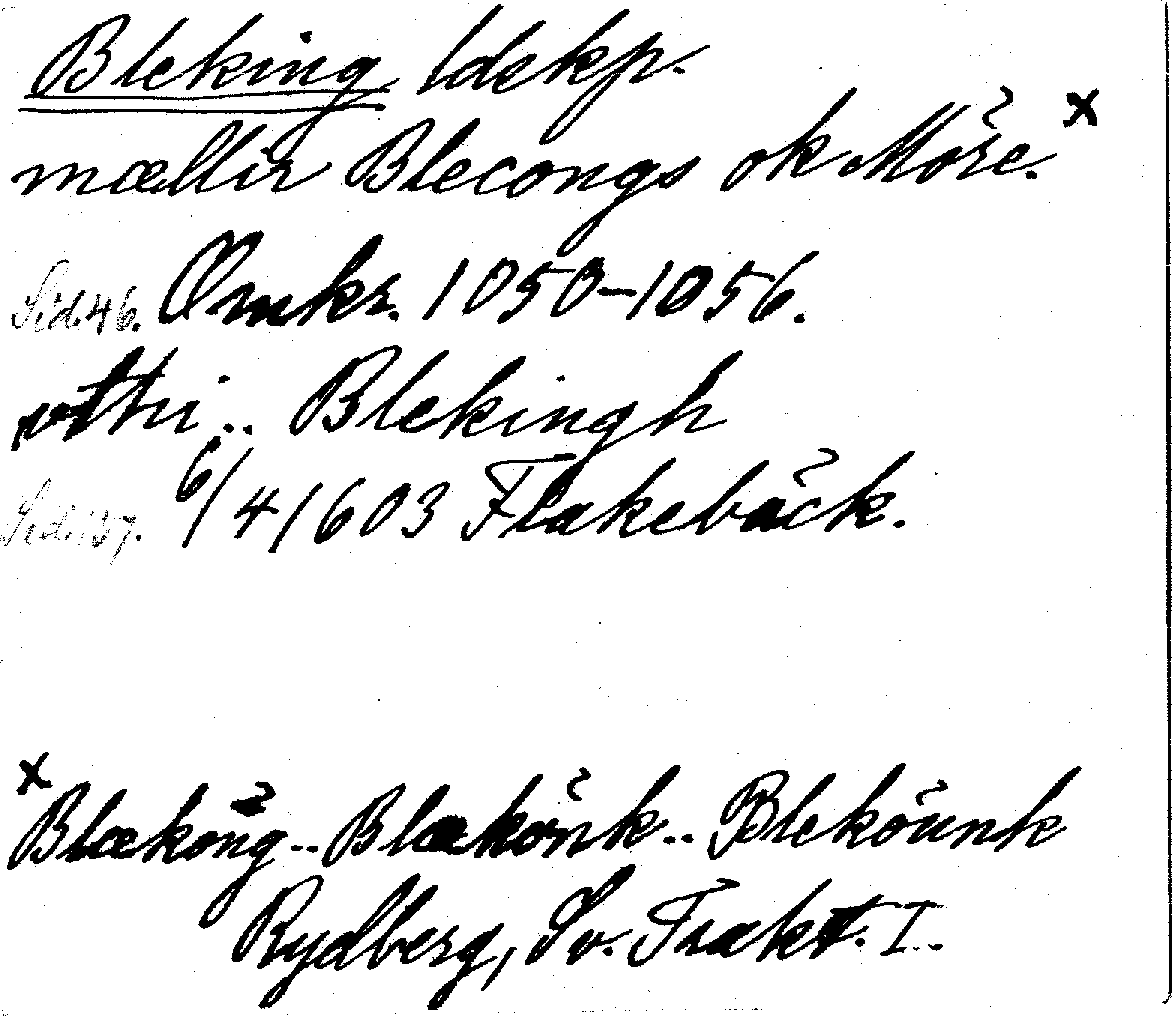 Bleking ldskp.
mællir Blecongs ok Möre. x
Sid. 46. Omkr. 1050-1056.
vthi .. Blekingh
Sid. 137. 6/4 1603 Flakebäck.
x Blæköng .. Blækönk .. Bleköunk
Rydberg, Sv. Trakt. I..